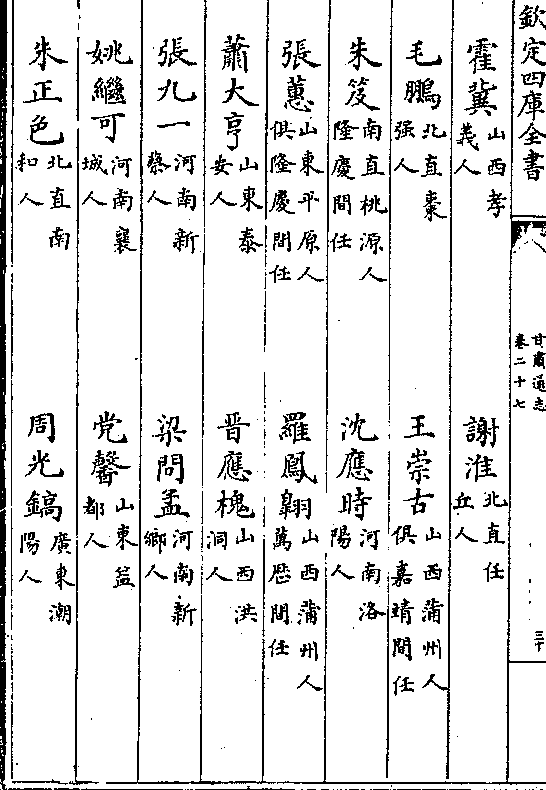 欽定四庫全書
甘肅通志
卷二十七
三十
霍冀山西孝義人
謝淮北直任丘人
毛鵬北直棗强人
王崇古山西蒲州人俱嘉靖間任
朱笈南直桃源人隆慶間任
沈應時河南洛陽人
張蕙山東平原人俱隆慶間任
羅鳳翱山西蒲州人萬厯間任
蕭大亨山東泰安人
晉應槐山西洪洞人
張九一河南新蔡人
梁問孟河南新鄉人
姚繼可河南襄城人
党馨山東益都人
朱正色北直南和人
周光鎬廣東潮陽人